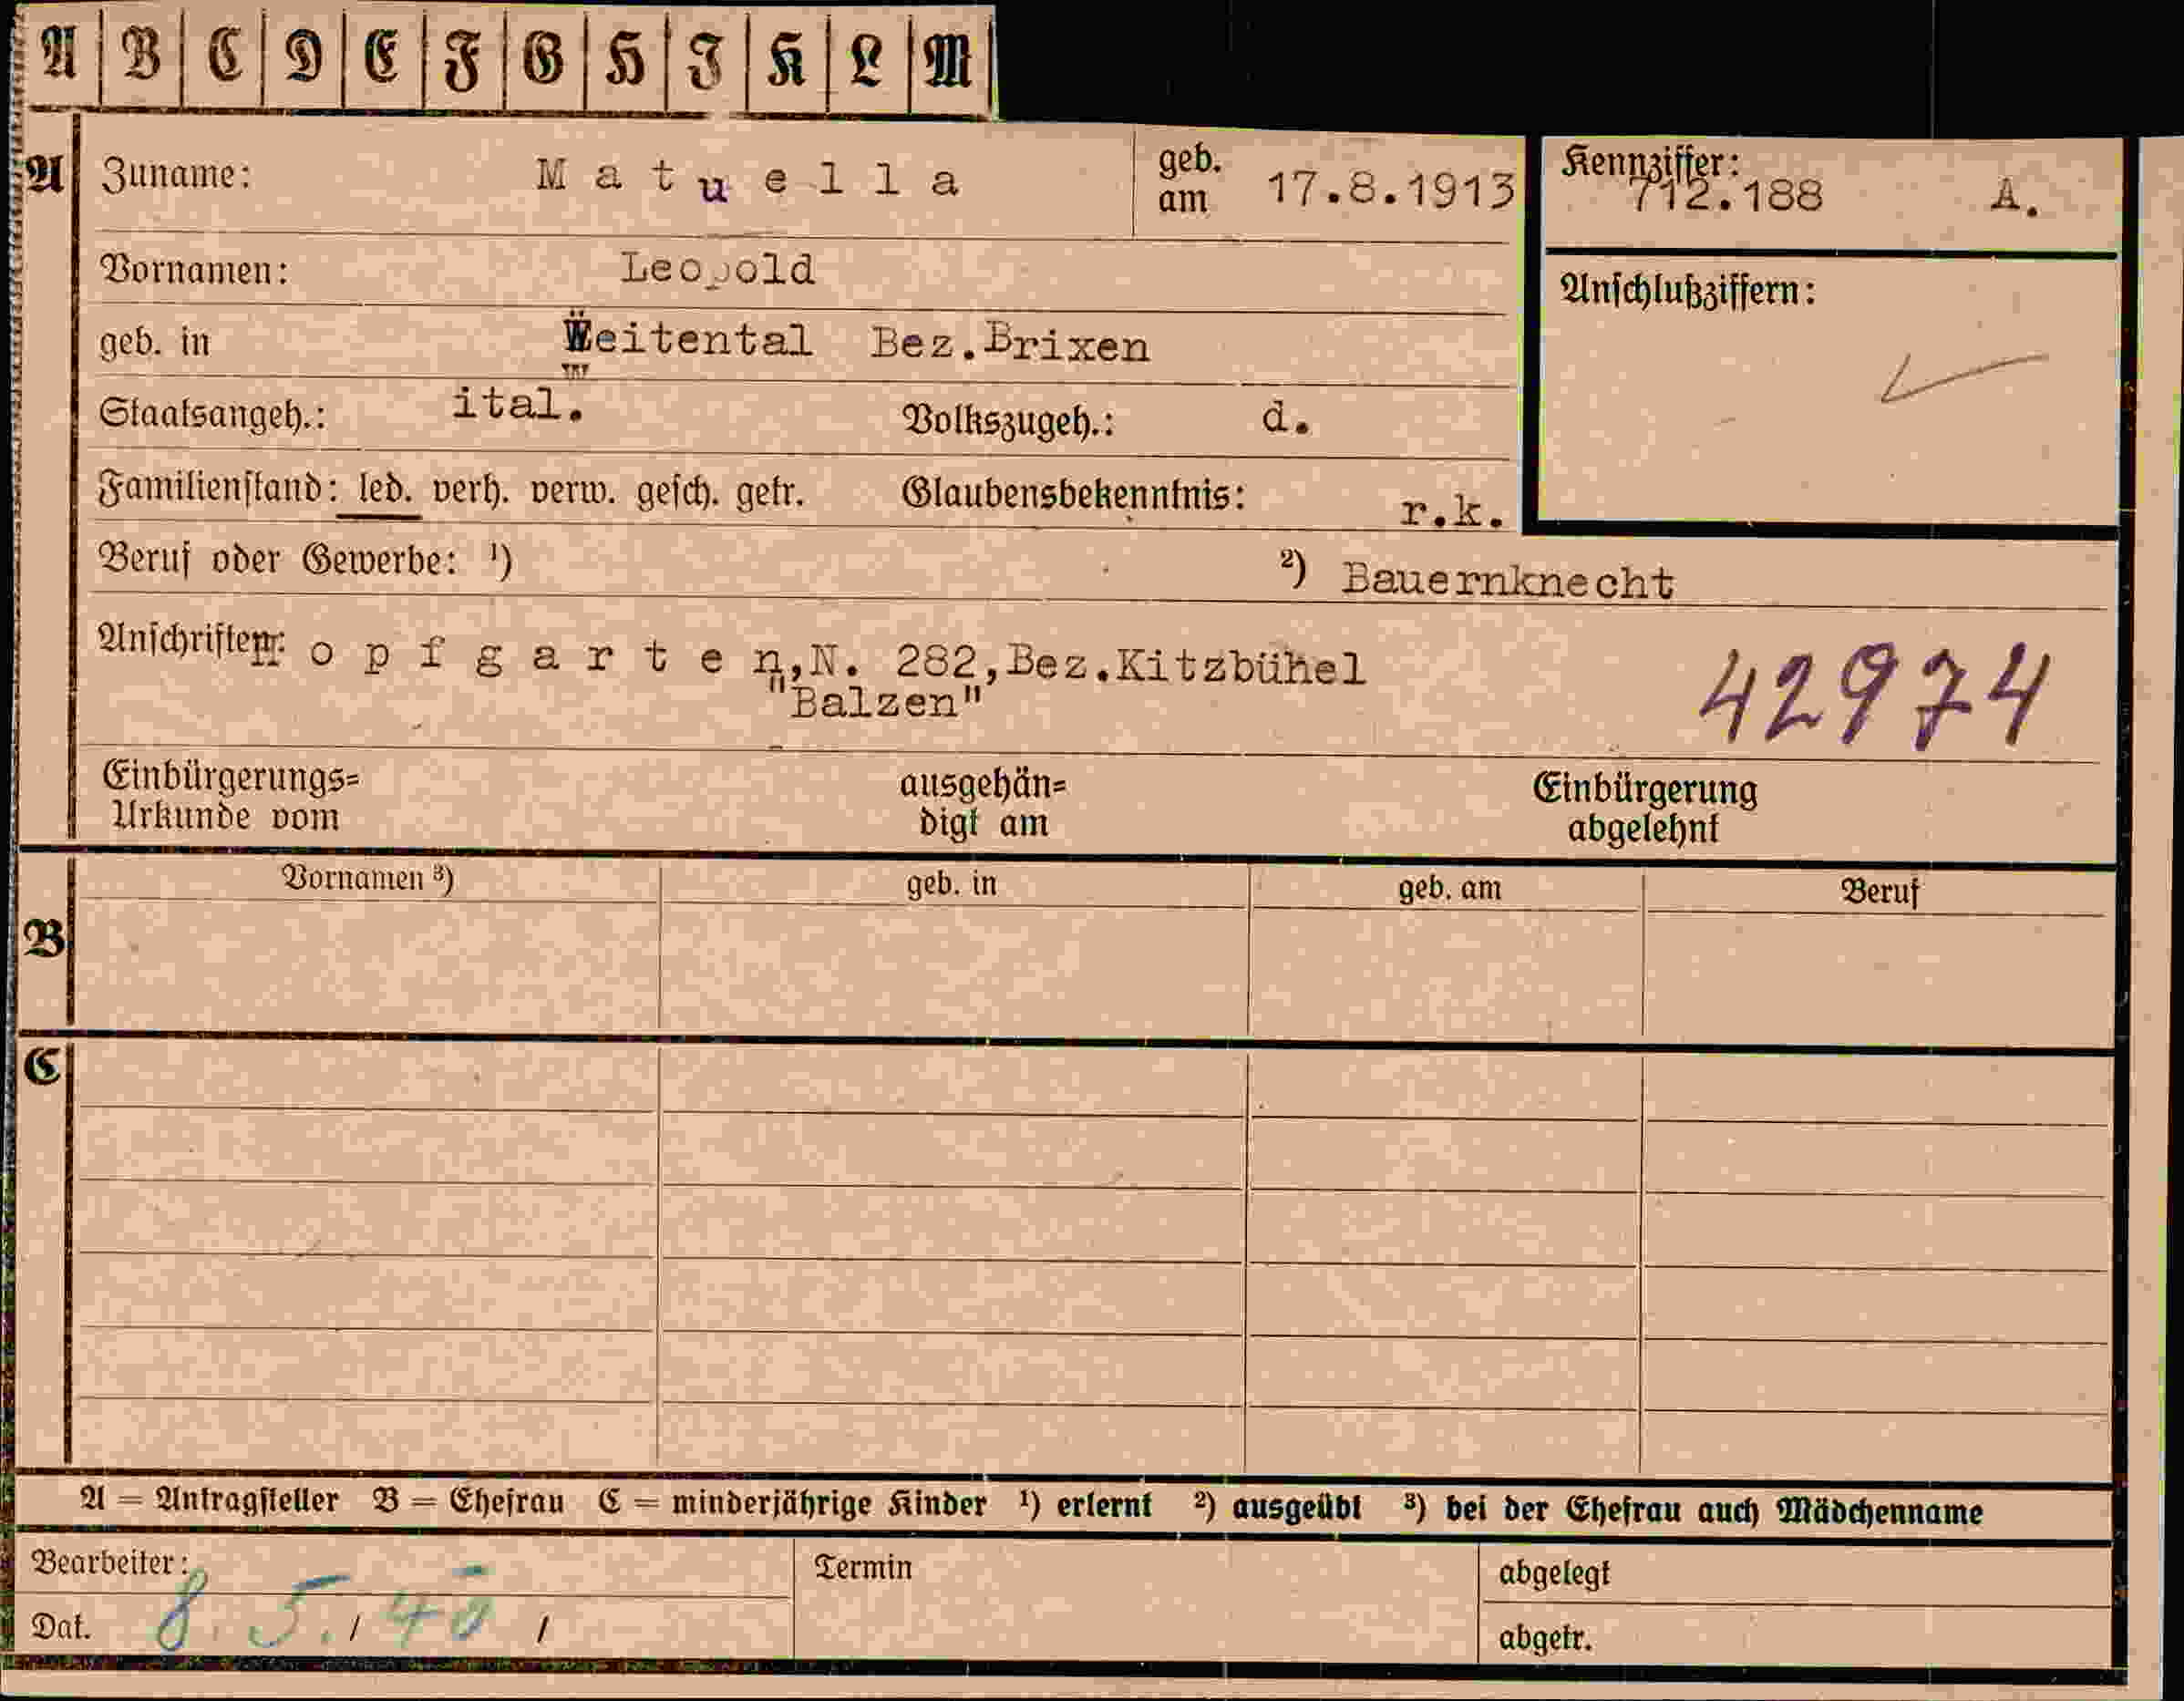 A B C D E F G H I K L M
A Zuname: Matuella geb. am 17.8.1913 Kennziffer: 712.188 A.
Vornamen: Leopold
Anschlußziffern:
geb. in Weitental Bez.Brixen
Staatsangeh.: ital. Volkszugeh.: d.
Familienstand: led. verh. verw. gesch. getr. Glaubensbekenntnis: r.k.
Beruf oder Gewerbe: ¹) ²) Bauernknecht
Anschriften: Hopfgarten,N. 282,Bez.Kitzbühel
"Balzen"
42974
Einbürgerungs= Urkunde vom ausgehän= digt am Einbürgerung abgelehnt
B Vornamen ³) geb. in geb. am Beruf
C
A = Antragsteller B = Ehefrau C = minderjährige Kinder ¹) erlernt ²) ausgeübt ³) bei der Ehefrau auch Mädchenname
Bearbeiter: Termin abgelegt
Dat. 8. 5. / 40 / abgetr.